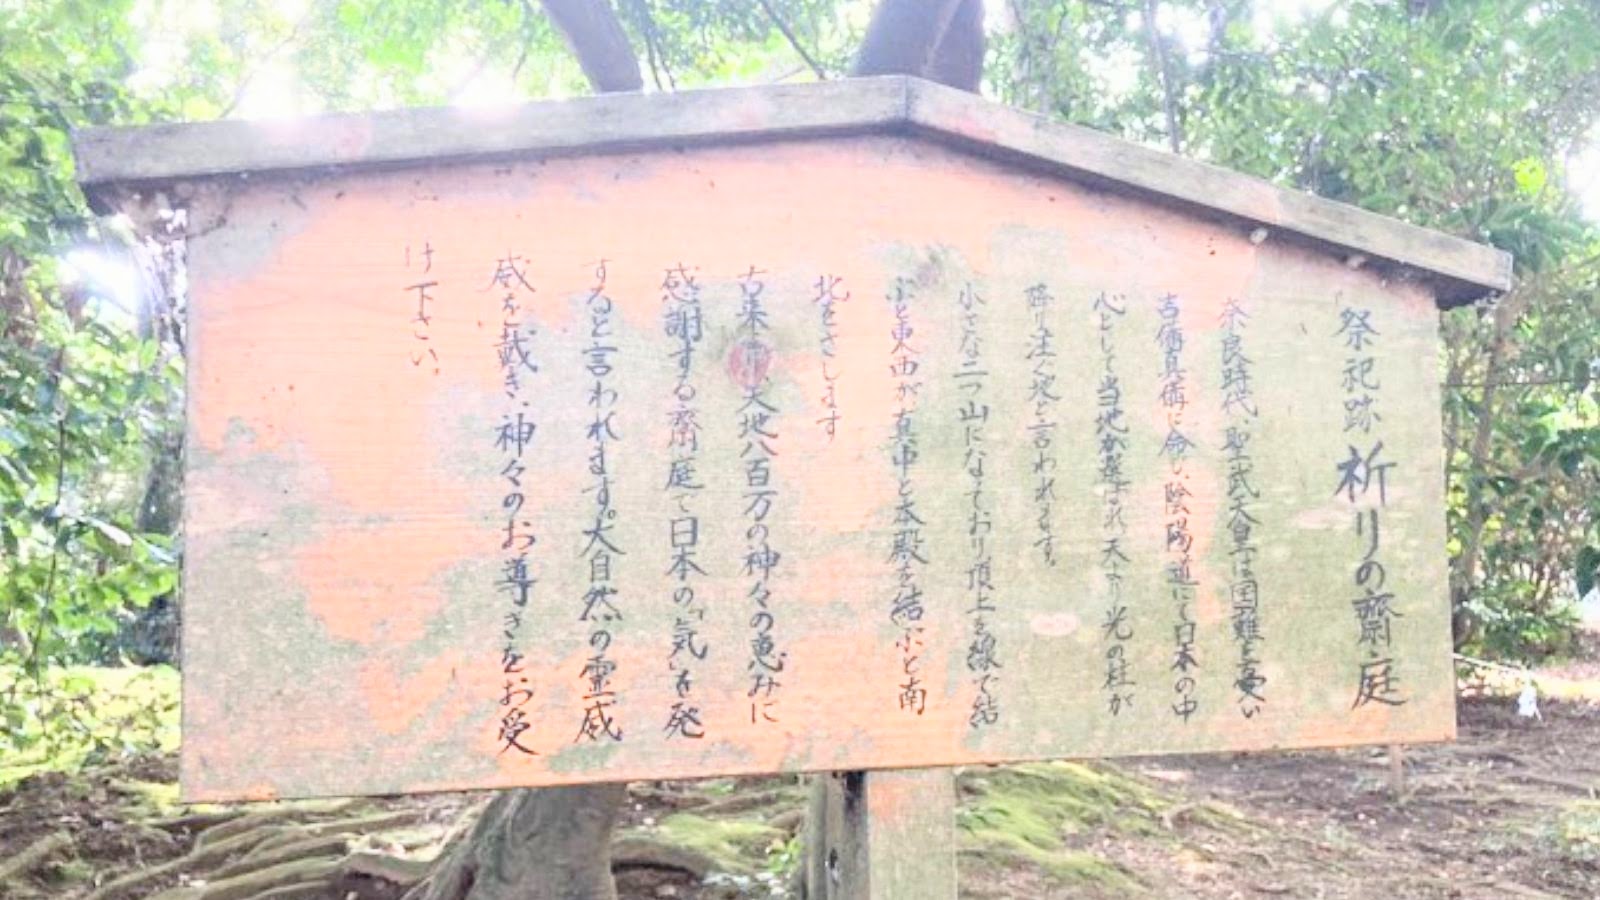 祭祀跡 祈りの齋庭
奈良時代、聖武天皇は国難を憂い
吉備真備に命じ、陰陽道にて日本の中
心として当地が選ばれ天より光の柱が
降り注ぐ地と言われます。
小さな二つ山になており頂上を線で結
ぶと東西が真中と本殿を結ぶと南
北をさします
古来 天地八百万の神々の恵みに
感謝する齋庭で日本の「気」を発
すると言われます。大自然の霊感
感を戴き、神々のお導きをお受
け下さい。